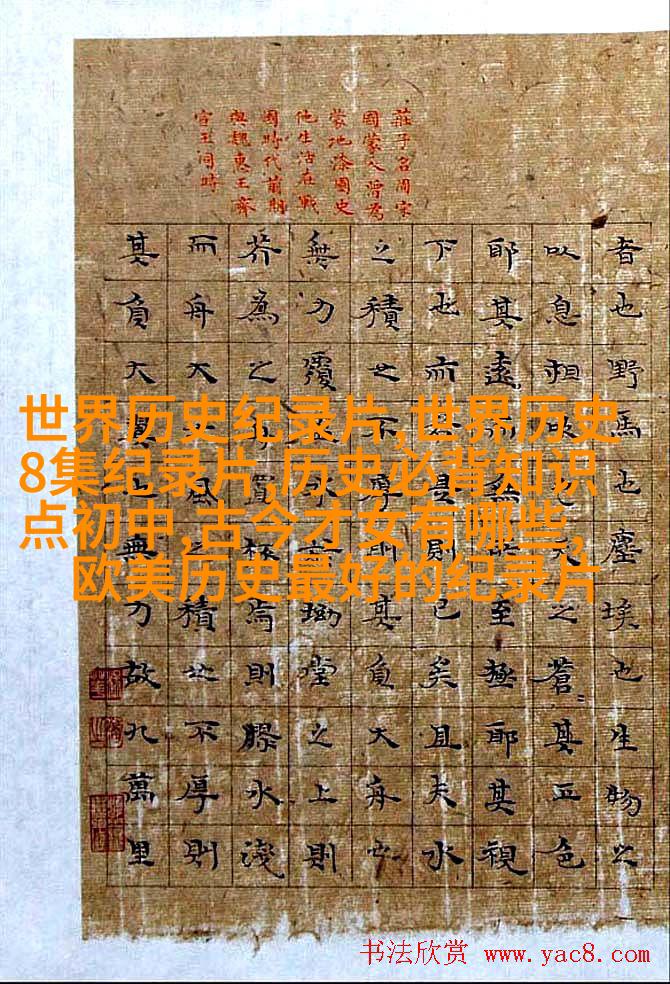 莊子名周宋
國蒙人曾為
蒙地漆園史
他生活在戰
國時代前期
與魏惠王齊
宣王同時
者也野馬也塵埃也生物之
以息相吹也天之蒼〻其正色
耶其遠而無所至極耶其視
下也而若是則已矣且夫水
之積也不厚則其負大舟也
無力覆杯水於坳堂之上則
芥為之舟置杯焉則膠水淺
而舟大也風之積也不厚則
其負大翼也無力故九萬里
世界历史纪录片,世界历史
8集纪录片,历史必背知识
点初中,古今才女有哪些,
欧美历史最好的纪录片
书法欣赏 www.yac8.com